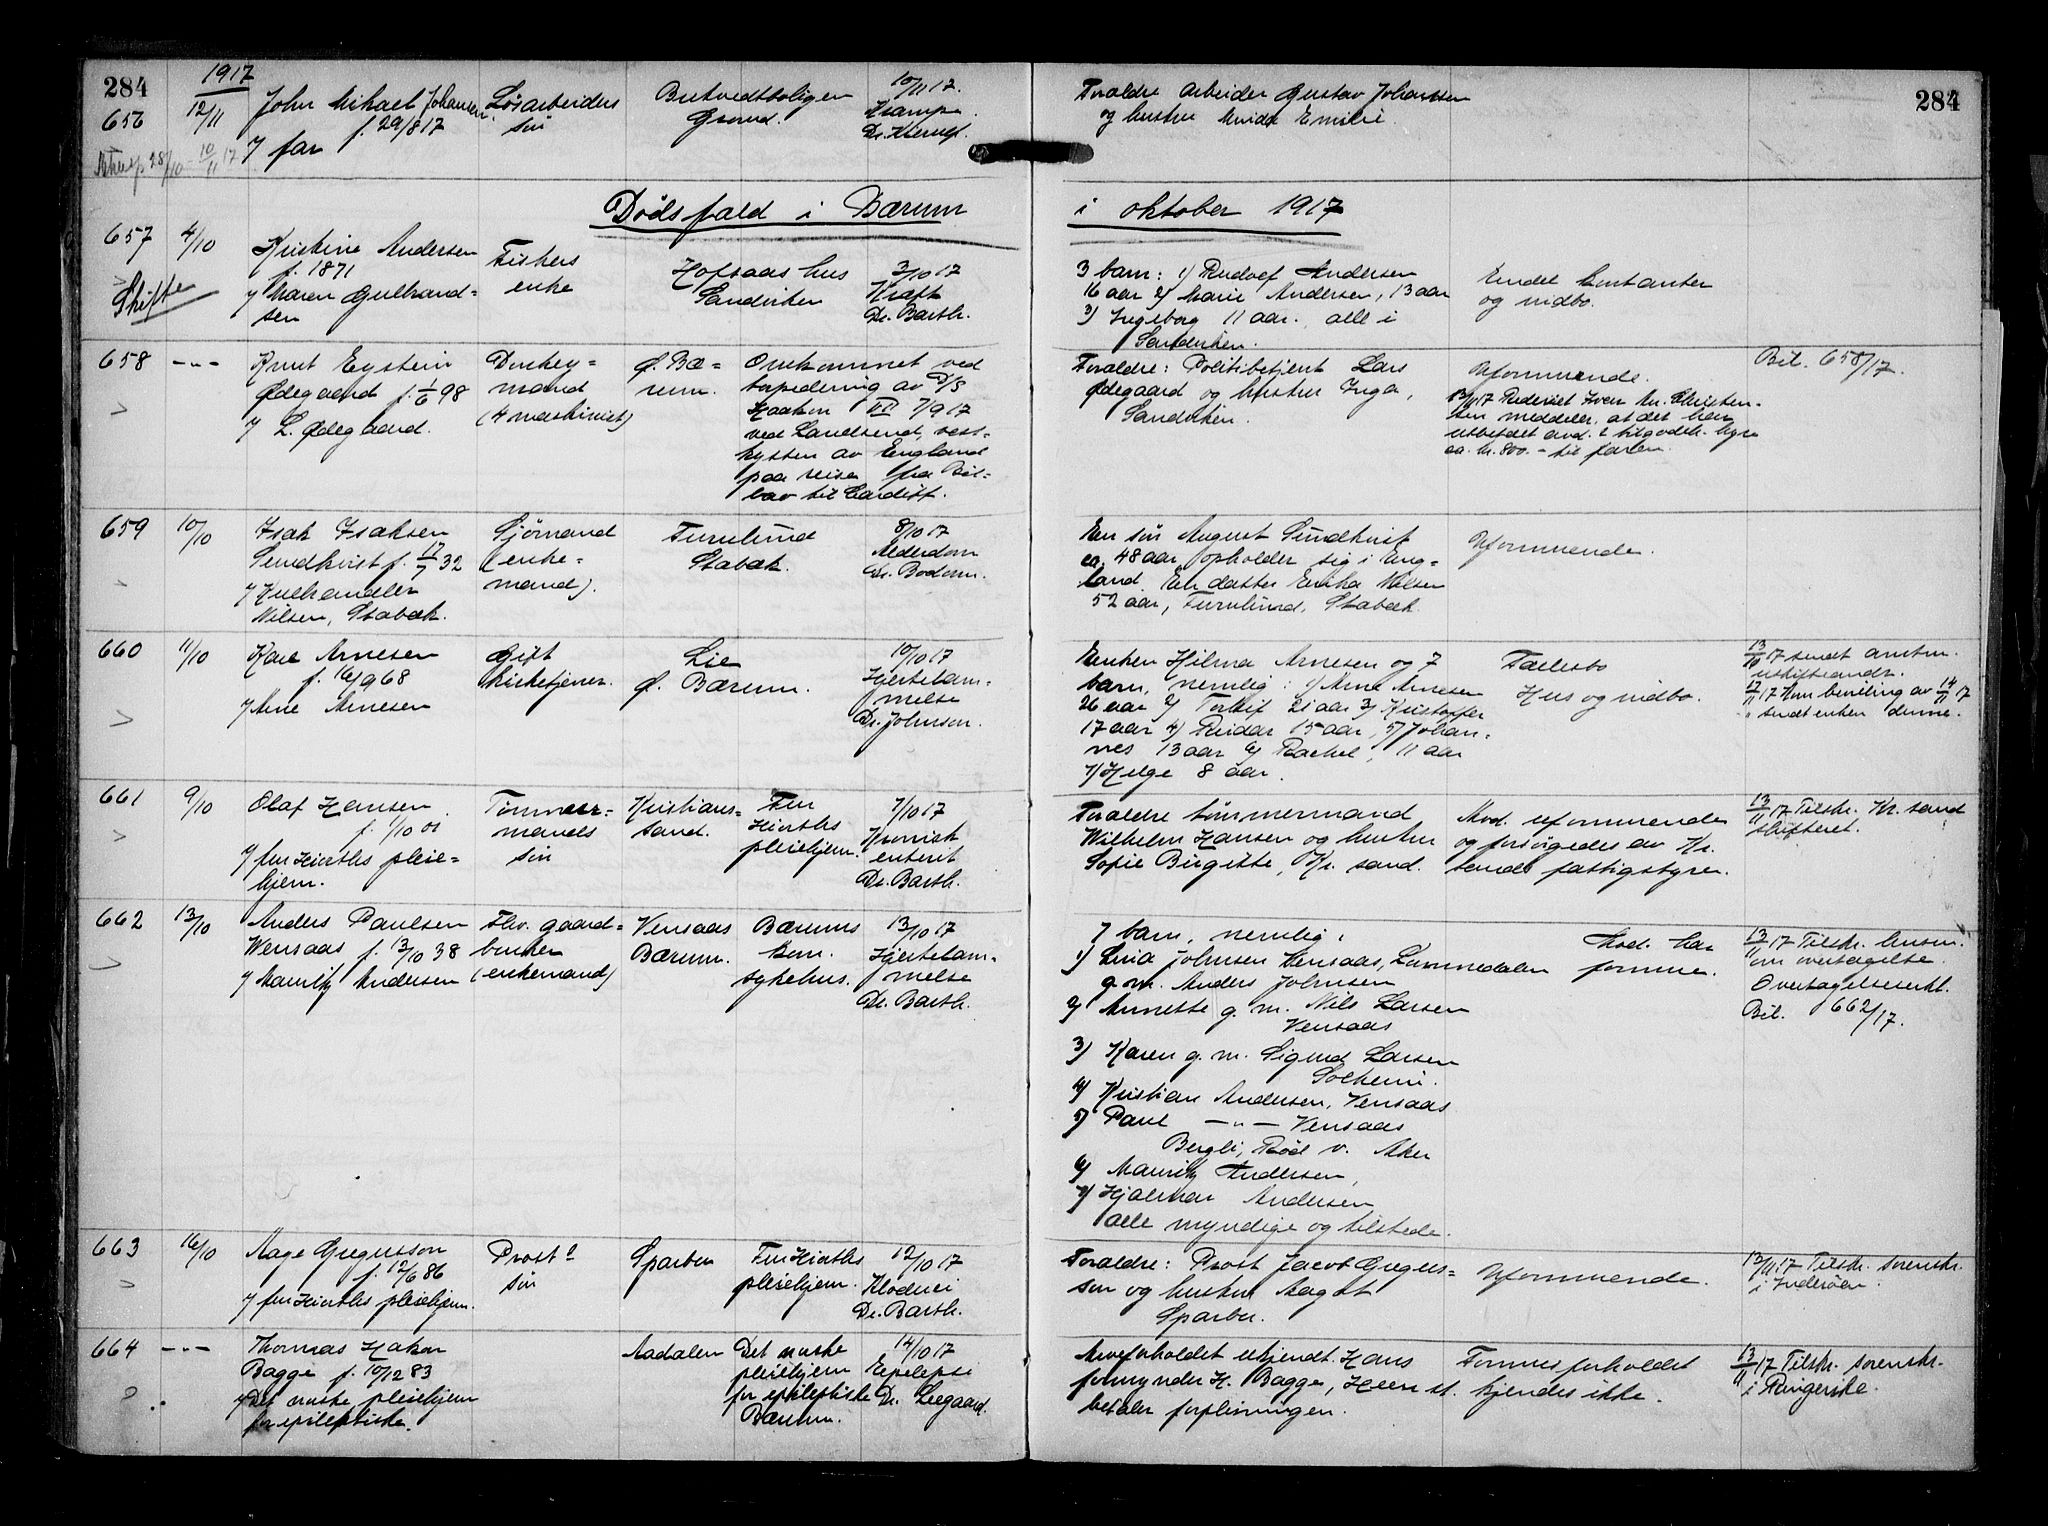 284
1917
656
12/11
John Mikael Johansen.
f. 29/8 17
7 far
Løsarbeiders
søn
Bretvedtboligen
Grorud.
10/11 17.
Krampe.
Forældre Arbeider Gustav Johansen
og hustru Emilie
284
Dødsfald i Bærum
i oktober 1917
657
4/10
Skifte
Kristine Andersen
f. 1871
7 Maren Gulbrand=
sen
Fiskers
enke
Hofsaas hus
Sandviken
3/10 17
Kræft
Dr. Barth.
3 barn: 1) Rudolf Andersen
16 aar 2) Marie Andersen, 13 aar
3) Ingeborg 11 aar, alle i
Sandviken.
Endel kontanter
og indbo.
658
-"-
Knut Eystein
Ødegaard f. 1/6 98
7 L. Ødegaard.
Donkey=
mand
(4 maskinist)
Ø. Bæ=
rum.
Omkommet ved
torpedering av D/S
Haakon VII 7/9 17
ved Landsend, vest-
kysten av England
paa reise fra Bil=
bao til Cardiff.
Forældre: Politibetjent Lars
Ødegaard og hustru Inga,
Sandviken.
Uformuende.
13/11 17 Rederiet Hr. Christen-
sen meddeler, at det har
utbetalt avd.s tilgodeh. hyre
ca. kr. 800.- til faren.
Bil. 658/17.
659
10/10
Isak Isaksen
Sundkvist f. 17/7 32
7 Kulhandler
Nilsen, Stabæk.
Sjömand
(enke=
mand).
Furulund
Stabæk.
8/10 17
Alderdom
Dr. Bodom.
En søn August Sundkvist
ca. 48 aar, opholder sig i Eng=
land. En datter Erika Nilsen
52 aar, Furulund, Stabæk.
Uformuende.
660
11/10
Karl Arnesen
f. 16/9 68
7 Arne Arnesen
Gift
kirketjener.
Lie
Ø. Bærum.
10/10 17
Hjertelam=
melse
Dr. Johnson.
Enken Hilma Arnesen og 7
barn, nemlig: 1) Arne Arnesen
26 aar 2) Torleif 21 aar 3) Kristoffer
17 aar 4) Reidar 15 aar, 5) Johan-
nes 13 aar 6) Rachel, 11 aar
7) Helge 8 aar.
Fællesbo
Hus og indbo.
13/10 17 sendt anm.
uskifteandr.
17/11 17 Kom bevilling av 14/11 17
sendt enken denne.
661
9/10
Olaf Hansen
f. 1/10 01
7 fru Hiorths pleie=
hjem.
Tømmer=
mands
søn
Kristians-
sand.
Fru
Hiorths
pleiehjem.
7/10 17
Kronisk
enterit
Dr. Barth.
Forældre tømmermand
Wilhelm Hansen og hustru
Sofie Birgitte, Kr. sand.
Avd. uformuende
og forsörgedes av Kr.
sands fattigstyre.
13/11 17 Tilskr. Kr. sand
skifteret.
662
13/10
Anders Paulsen
Wensaas f. 13/10 38
7 Mauritz Andersen
Fhv. gaard=
bruker
(enkemand)
Vensaas
Bærum.
Bærums
kom.
sykehus.
13/10 17
Hjertelam-
melse
Dr. Barth.
7 barn, nemlig:
1) Lina Johnsen Vensaas, Lommedalen
g. m. Anders Johnsen
2) Annette g. m. Nils Larsen
Vensaas
3) Karen g. m. Sigurd Larsen
Solheim.
4) Kristian Andersen, Vensaas
5) Paul -"- Vensaas
Bergli, Røa v. Aker
6) Mauritz Andersen,
7) Hjalmar Andersen
alle myndige og tilstede.
Avd. ha-
formue.
13/11 17 Tilskr. lensm.
om overtagelse.
Overtagelseserkl.
Bil. 662/17.
663
16/10
Aage Gregusson
f. 12/6 86
7 fru Hiorths pleiehjem.
Prost
søn
Sparbu
Fru Hiorths
pleiehjem.
12/10 17
Dr. Barth.
Forældre: Prost Jacob Gregus-
son og hustru Aagot
Sparbu.
Uformuende.
13/11 17 Tilskr. sorenskr.
i Inderøen.
664
-"-
Thomas Hakon
Bagge f. 10/12 83
7 Det norske pleiehjem
for epileptiske.
Aadalen
Det norske
pleiehjem
for epileptiske
Bærum.
14/10 17
Epilepsi
Dr. Leegaard.
Arveforholdet ukjendt. Hans
formynder H. Bagge, Heen st.
betaler forpleiningen.
Formuesforholdet
kjendes ikke.
13/11 17 Tilskr. sorenskr.
i Ringerike.